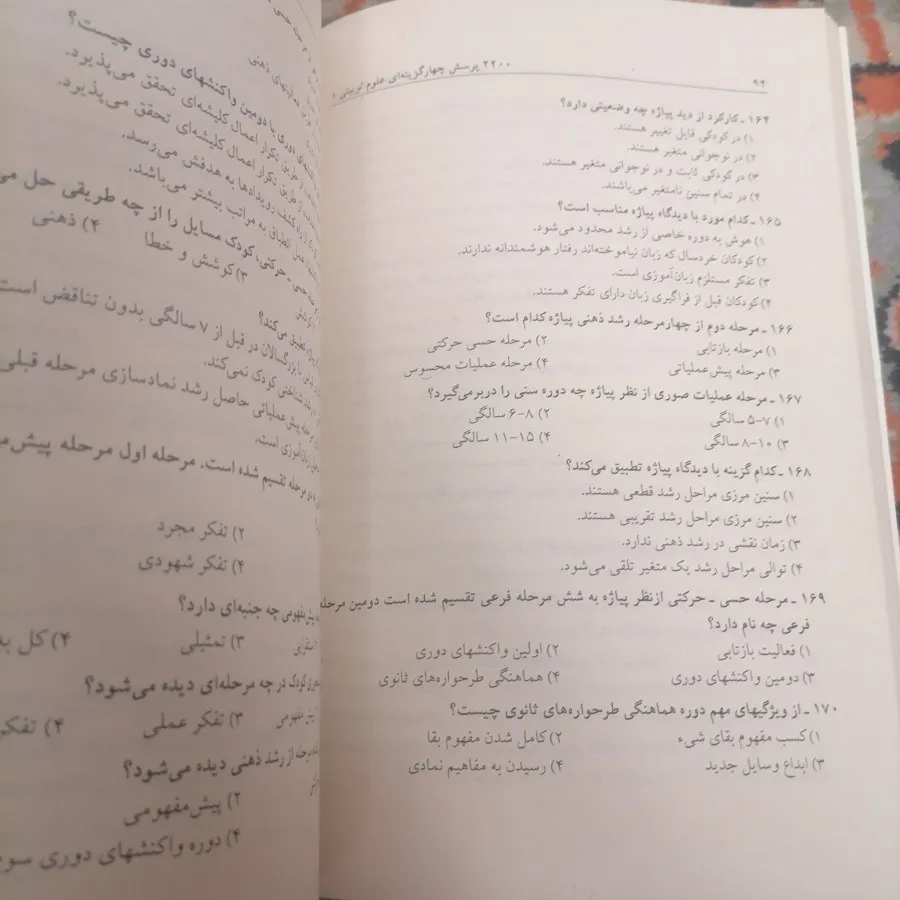 ۹۴
۲۲۰۰ پرسش چهارگزینه‌ای علوم تربیتی ۲
۱۶۴ ـ کارکرد از دید پیاژه چه وضعیتی دارد؟
۱) در کودکی قابل تغییر هستند.
۲) در نوجوانی متغیر هستند.
۳) در کودکی ثابت و در نوجوانی متغیر هستند.
۴) در تمام سنین نامتغیر می‌باشند.
۱۶۵ ـ کدام مورد با دیدگاه پیاژه مناسب است؟
۱) هوش به دوره خاصی از رشد محدود می‌شود.
۲) کودکان خردسال که زبان نیاموخته‌اند رفتار هوشمندانه ندارند.
۳) تفکر مستلزم زبان‌آموزی است.
۴) کودکان قبل از فراگیری زبان دارای تفکر هستند.
۱۶۶ ـ مرحله دوم از چهارمرحله رشد ذهنی پیاژه کدام است؟
۱) مرحله بازتابی ۲) مرحله حسی حرکتی
۳) مرحله پیش‌عملیاتی ۴) مرحله عملیات محسوس
۱۶۷ ـ مرحله عملیات صوری از نظر پیاژه چه دوره سنی را دربرمی‌گیرد؟
۱) ۷-۵ سالگی ۲) ۸-۶ سالگی
۳) ۱۰-۸ سالگی ۴) ۱۵-۱۱ سالگی
۱۶۸ ـ کدام گزینه با دیدگاه پیاژه تطبیق می‌کند؟
۱) سنین مرزی مراحل رشد قطعی هستند.
۲) سنین مرزی مراحل رشد تقریبی هستند.
۳) زمان نقشی در رشد ذهنی ندارد.
۴) توالی مراحل رشد یک متغیر تلقی می‌شود.
۱۶۹ ـ مرحله حسی ـ حرکتی ازنظر پیاژه به شش مرحله فرعی تقسیم شده است دومین مرحله
فرعی چه نام دارد؟
۱) فعالیت بازتابی ۲) اولین واکنشهای دوری
۳) دومین واکنشهای دوری ۴) هماهنگی طرحواره‌های ثانوی
۱۷۰ ـ از ویژگیهای مهم دوره هماهنگی طرحواره‌های ثانوی چیست؟
۱) کسب مفهوم بقای شیء ۲) کامل شدن مفهوم بقا
۳) ابداع وسایل جدید ۴) رسیدن به مفاهیم نمادی
واکنشهای دوری چیست؟
فعالیتهای ذهنی
دوری یا دومین واکنشهای دوری
طریق تکرار اعمال کلیشه‌ای تحقق می‌پذیرد.
طریق تکرار اعمال کلیشه‌ای تحقق می‌پذیرد.
کشف رویدادها به هدفش می‌رسد.
انطباق به مراتب بیشتر می‌باشد.
حسی ـ حرکتی، کودک مسایل را از چه طریقی حل
۳) کوشش و خطا ۴) ذهنی
تطبیق می‌کند؟
با بزرگسالان در قبل از ۷ سالگی بدون تناقض است
رشد شناختی کودک نمی‌کند.
مرحله پیش‌عملیاتی حاصل رشد نمادسازی مرحله قبلی
زبان‌آموزی است.
مرحله تقسیم شده است. مرحله اول مرحله
۲) تفکر مجرد
۴) تفکر شهودی
پیش‌مفهومی چه جنبه‌ای دارد؟
۳) تمثیلی ۴) کل به
کودک در چه مرحله‌ای دیده می‌شود؟
پیش‌مفهومی ۳) تفکر عملی ۴) تفکر
مرحله از رشد ذهنی دیده می‌شود؟
۲) پیش‌مفهومی
۴) دوره واکنشهای دوری